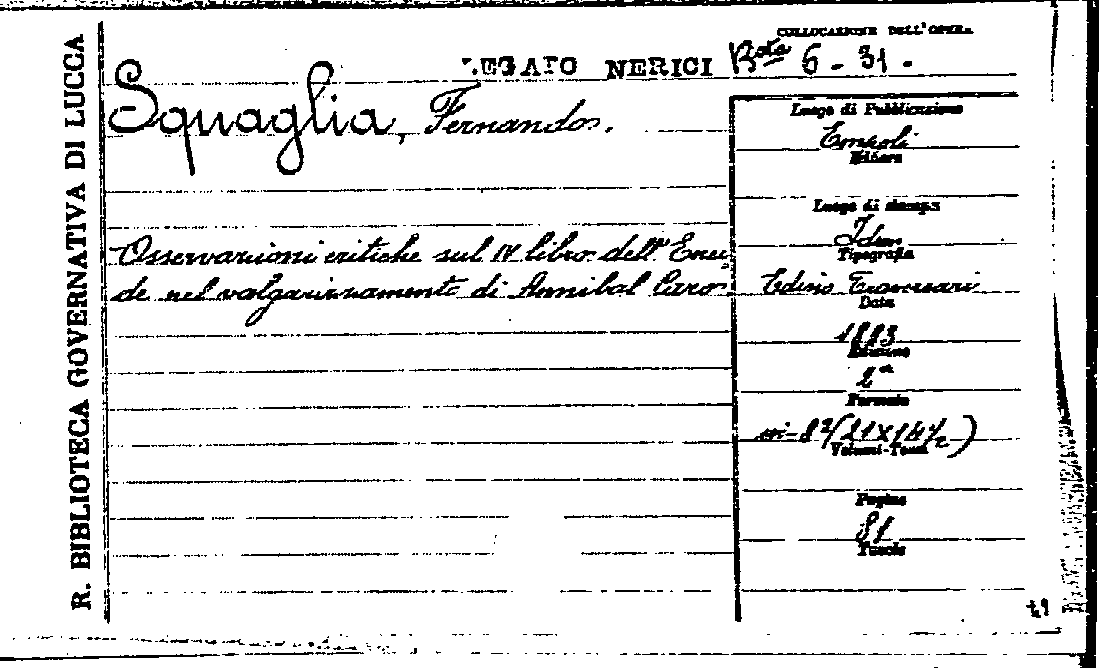 R. BIBLIOTECA GOVERNATIVA DI LUCCA
COLLOCAZIONE DELL'OPERA
LEGATO NERICI Bta 6 - 31 -
Squaglia, Fernando.
Osservazioni critiche sul IV libro dell'Enei
de nel volgarizzamento di Annibal Caro.
Luogo di Pubblicazione
Empoli
Editore
Luogo di stampa
Idem
Tipografia
Edino Traversari
Data
1893
Edizione
2a
Formato
in-8º (21 X 14½)
Volumi-Tomi
Pagine
81
Tavole